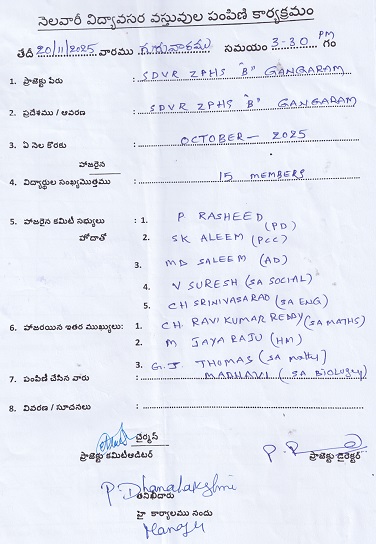 నెలవారీ విద్యావసర వస్తువుల పంపిణి కార్యక్రమం
తేదీ 20/11/2025 వారము గురువారము సమయం 3-30 PM గం
1. ప్రాజెక్టు పేరు : SDVR ZPHS "B" GANGARAM
2. ప్రదేశము / ఆవరణ : SDVR ZPHS "B" GANGARAM
3. ఏ నెల కొరకు : OCTOBER - 2025
హాజరైన
4. విద్యార్థుల సంఖ్యమొత్తము : 15 MEMBERS
5. హాజరైన కమిటీ సభ్యులు : 1. P RASHEED (PD)
హోదాతో 2. SK ALEEM (PCC)
3. MD SALEEM (AD)
4. V SURESH (SA SOCIAL)
5. CH SRINIVASARAO (SA ENG)
6. హాజరయిన ఇతర ముఖ్యులు: 1. CH. RAVI KUMAR REDDY (SA MATHS)
2. M JAYA RAJU (HM)
3. G.J. THOMAS (SA maths)
7. పంపిణి చేసిన వారు : MADHAVI (SA BIOLOGY)
8. వివరణ / సూచనలు :
చైర్మన్
ప్రాజెక్టు కమిటీఆడిటర్ ప్రాజెక్టు డైరెక్టర్
P. Dhanalakshmi
తనిఖీదారు
హై కార్యాలము నందు